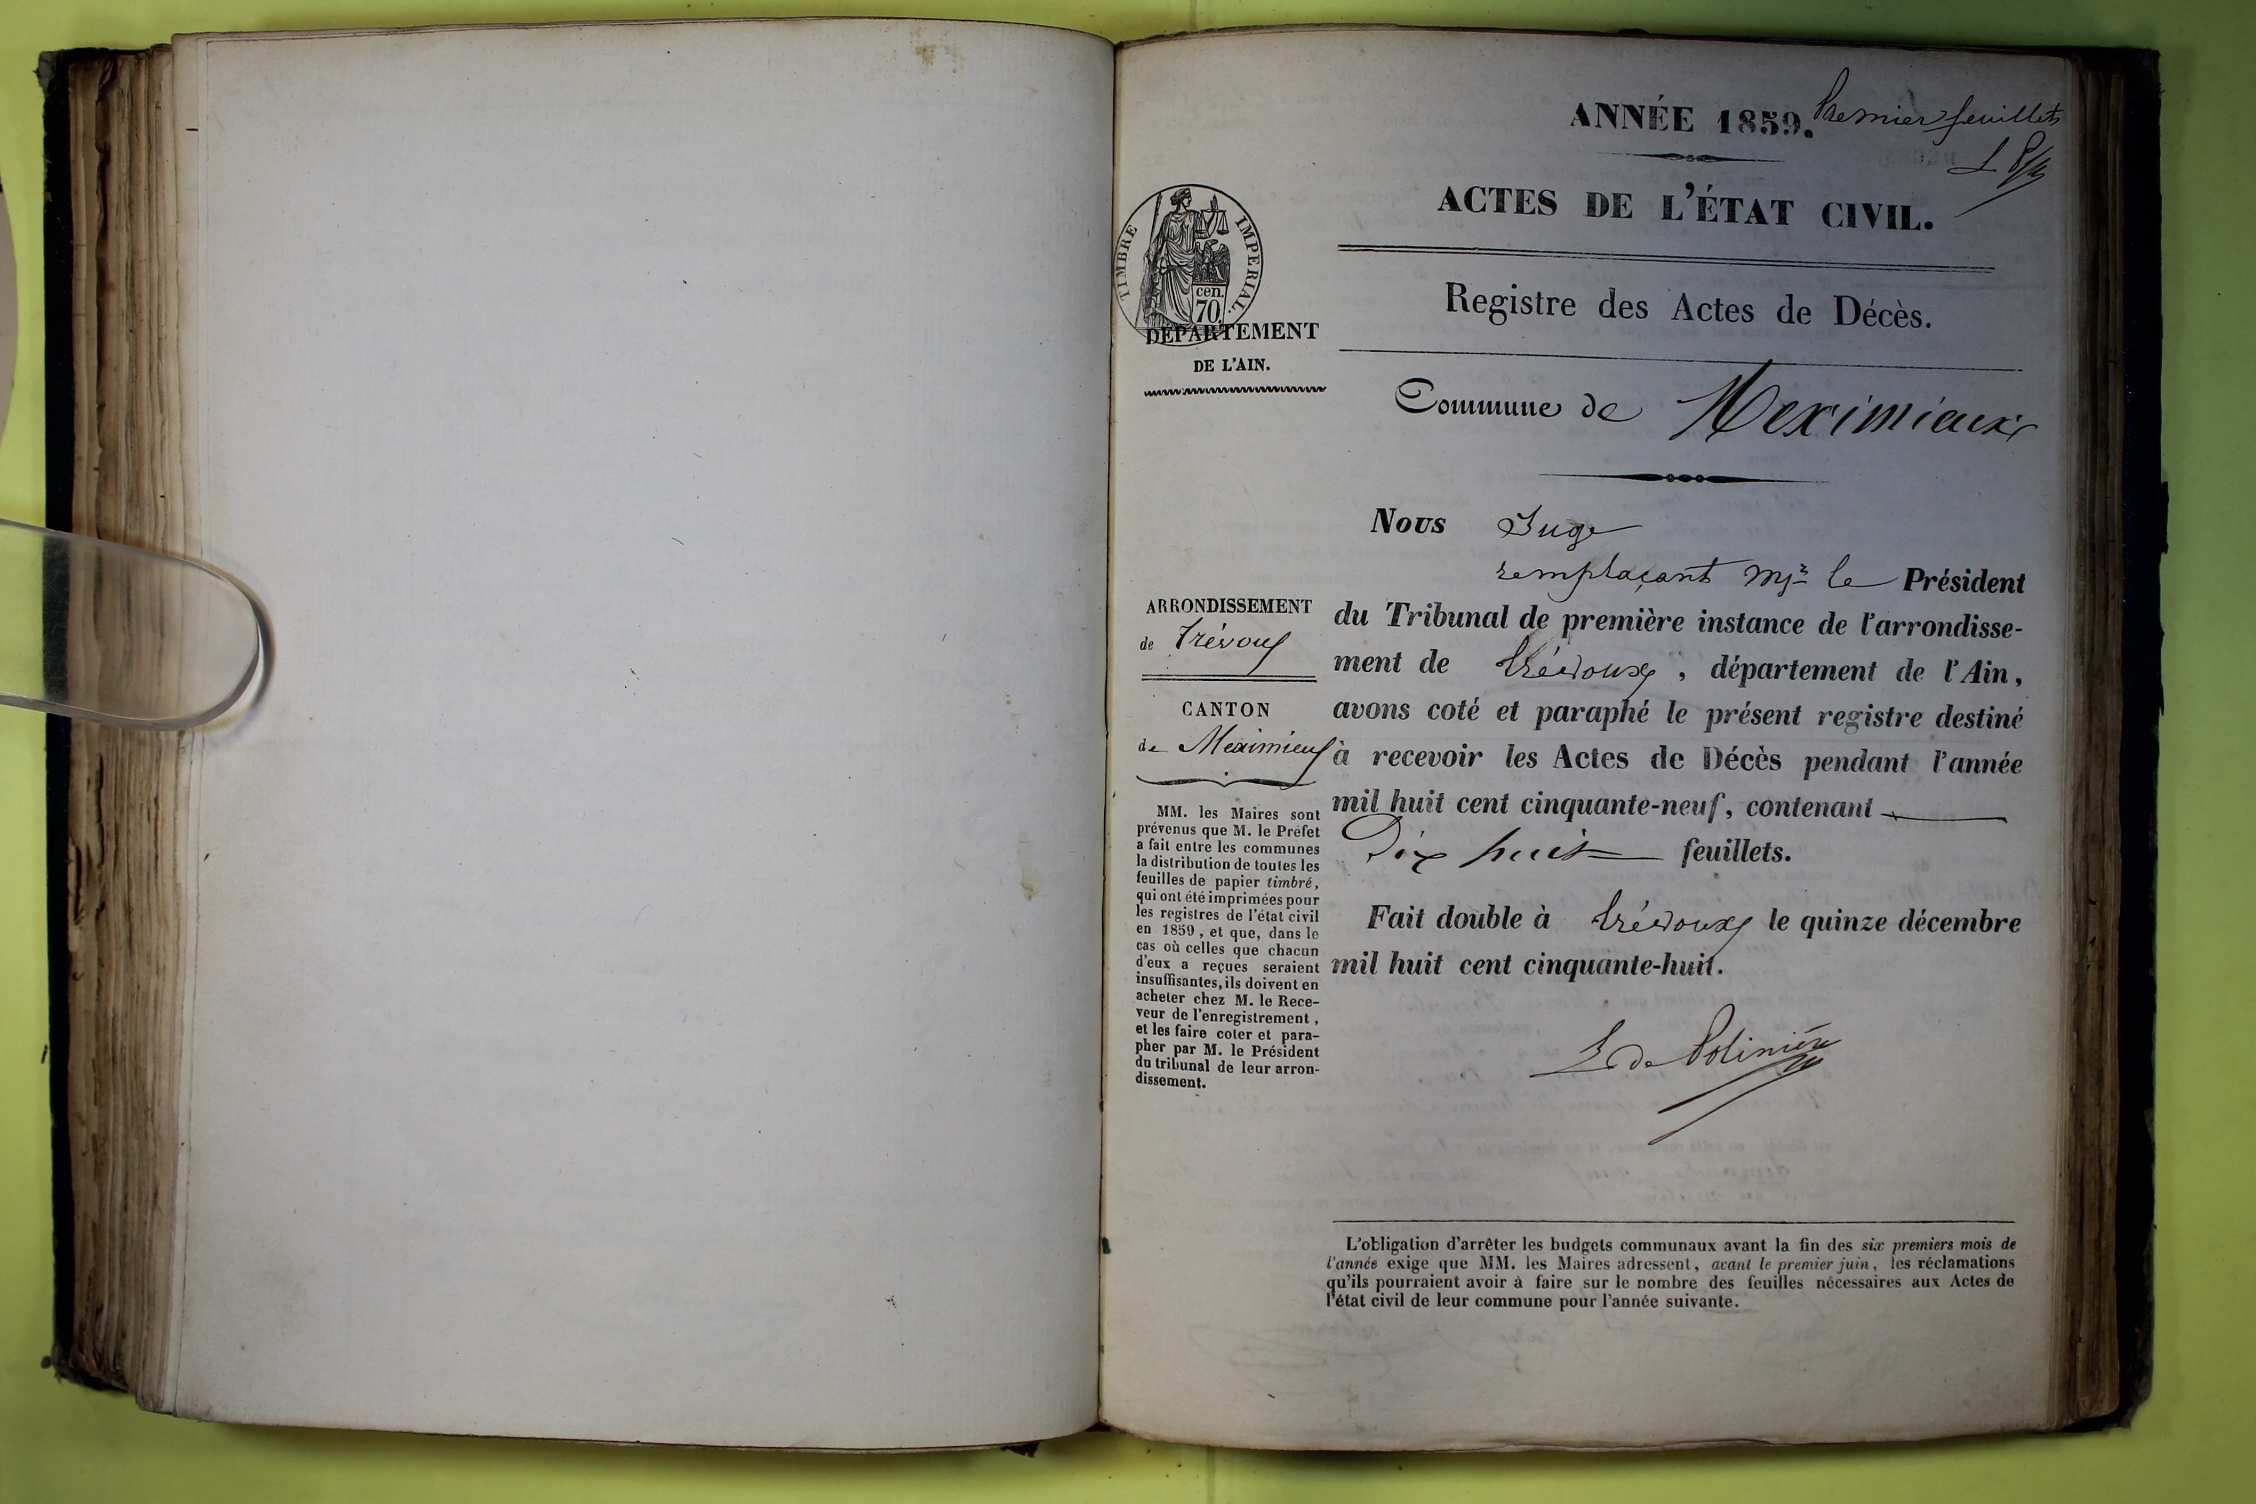 ANNÉE 1859. Premier feuillet
ACTES DE L'ÉTAT CIVIL.
Registre des Actes de Décès.
Commune de Meximieux
TIMBRE IMPERIAL.
cen.
70.
DÉPARTEMENT
DE L'AIN.
ARRONDISSEMENT
de Trévoux
CANTON
de Meximieux
MM. les Maires sont
prévenus que M. le Préfet
a fait entre les communes
la distribution de toutes les
feuilles de papier timbré,
qui ont été imprimées pour
les registres de l'état civil
en 1859, et que, dans le
cas où celles que chacun
d'eux a reçues seraient
insuffisantes, ils doivent en
acheter chez M. le Rece-
veur de l'enregistrement,
et les faire coter et para-
pher par M. le Président
du tribunal de leur arron-
dissement.
Nous Juge
remplaçant Mr le Président
du Tribunal de première instance de l'arrondisse-
ment de Trévoux, département de l'Ain,
avons coté et paraphé le présent registre destiné
à recevoir les Actes de Décès pendant l'année
mil huit cent cinquante-neuf, contenant
Dix huit feuillets.
Fait double à Trévoux le quinze décembre
mil huit cent cinquante-huit.
de Polinière
L'obligation d'arrêter les budgets communaux avant la fin des six premiers mois de
l'année exige que MM. les Maires adressent, avant le premier juin, les réclamations
qu'ils pourraient avoir à faire sur le nombre des feuilles nécessaires aux Actes de
l'état civil de leur commune pour l'année suivante.